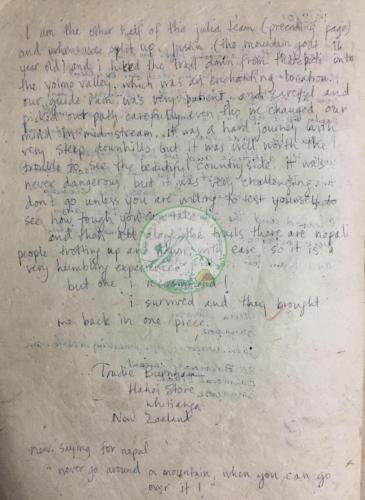 I am the other half of the julia team (preceding page)
and when we split up, Justin (the mountain goat 16
year old) and i hiked the trail down from Tharepati into
the yolmo valley, which was an enchanting location.
our guide Ram was very patient and careful and
picked our path carefully even tho we changed our
mind in mid-stream. It was a hard journey with
very steep downhills but it was well worth the
trouble to see the beautiful country side. It was
never dangerous but it was very challenging
don't go unless you are willing to test yourself to
see how tough you
and then all along the trails there are nepali
people trotting up and down with ease, so it is a
very humbling experience
but one i recommend!
i survived and they brought
me back in one piece.
Trudie Burnham
Hahei Store
Whitianga
New Zealand
new saying for nepal
"never go around a mountain, when you can go
over it!"